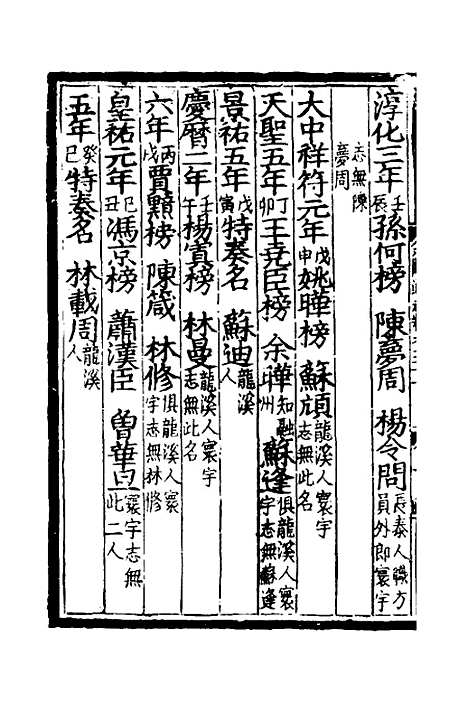 淳化三年壬辰孫何榜 陳夢周 楊令問長泰人職方員外郎寰宇
志無陳夢周
大中祥符元年戊申姚曄榜 蘇頎龍溪人寰宇志無此名
天聖五年丁卯王堯臣榜 余曄知融州 蘇逢俱龍溪人寰宇志無蘇逢
景祐五年戊寅特奏名 蘇迪龍溪人
慶曆二年壬午楊寘榜 林曼龍溪人寰宇志無此名
六年丙戌賈黯榜 陳箴 林修俱龍溪人寰宇志無林修
皇祐元年己丑馮京榜 蕭漢臣 曾華旦寰宇志無此二人
五年癸巳特奏名 林載周龍溪人